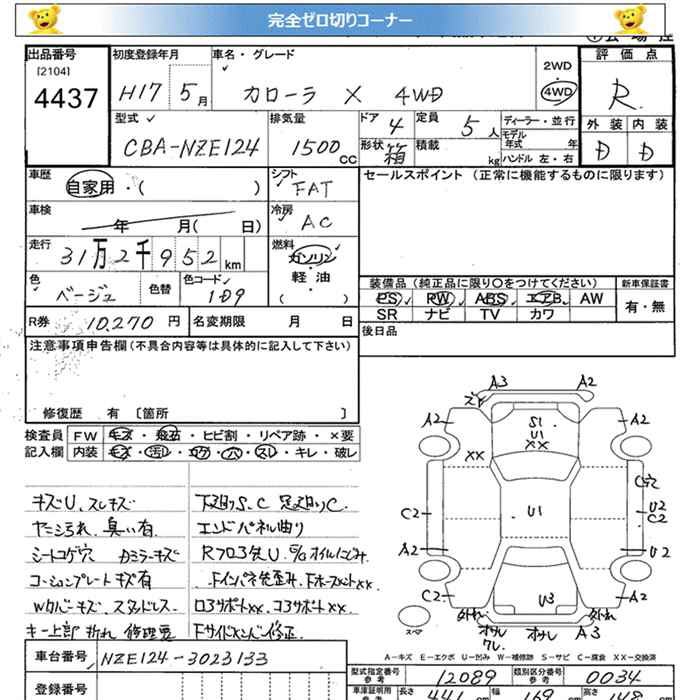 完全ゼロ切りコーナー
出品番号 初度登録年月 車名・グレード 評価点
[2104]
4437 H17 5月 カローラ X 4WD 2WD 4WD R
型式 排気量 ドア 定員 ディーラー・並行 外装 内装
CBA-NZE124 1500cc 4 5人 モデル年式 年 D D
形状 箱 積載 kg ハンドル 左・右
車歴 自家用・( ) シフト FAT セールスポイント (正常に機能するものに限ります)
車検 年 月( 日) 冷房 AC
走行 31万2千952km 燃料 ガソリン・軽油 ( )
色 ベージュ 色替 色コード 1D9
装備品 (純正品に限り○をつけてください) 新車保証書
PS PW ABS エアB AW 有・無
SR ナビ TV カワ
R券 10,270円 名変期限 月 日 後日品
注意事項申告欄(不具合内容等は具体的に記入して下さい)
修復歴 有 [箇所 ]
検査員 FW キズ・飛石・ヒビ割・リペア跡・×要
記入欄 内装 キズ・汚レ・コゲ・穴・スレ・キレ・破レ
キズU、スレキズ
ヤニ汚れ、臭い有
シートコゲ穴 カミラーキズ
コーションプレートキズ有
Wカバーキズ、スタッドレス
キー上部 折れ 修理要
下廻りS、C 足廻りC
エンドパネル曲り
A3 A2
A2 A2
S1
U1
XX
XX
C穴
C2 U1 U2
C2
A2 U2
C2 U3 A2
スペア 外れ 外れ
オサレ オサレ A3
ワレ
A-キズ E-エクボ U-凹み W-補修跡 S-サビ C-腐食 XX-交換済
車台番号 NZE124-3023133
登録番号
型式指定番号 参考 12089 類別区分番号 参考 0034
車庫証明用 参考 長さ 441 cm 幅 169 cm 高さ 148 cm